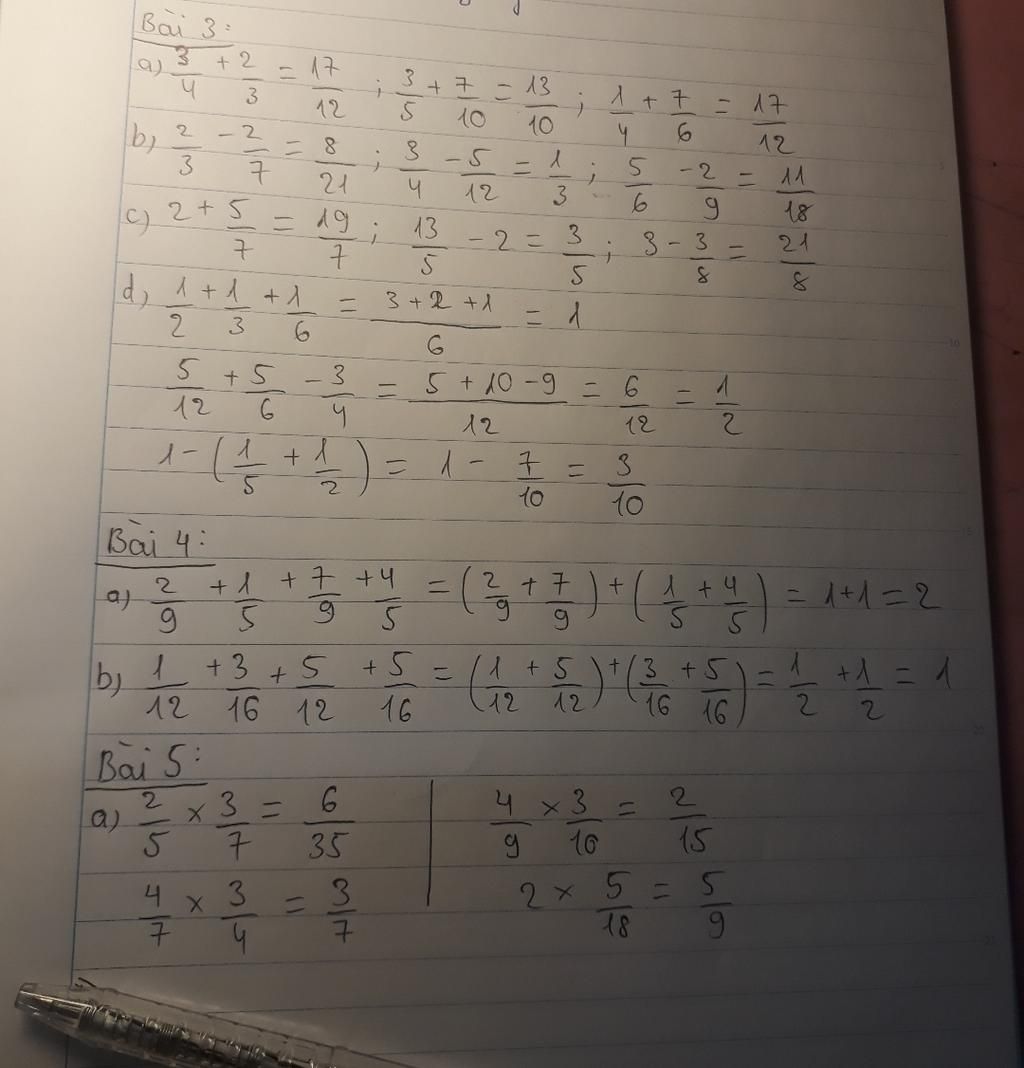 Bài 3:
a) 3/4 + 2/3 = 17/12 ; 3/5 + 7/10 = 13/10 ; 1/4 + 7/6 = 17/12
b) 2/3 - 2/7 = 8/21 ; 3/4 - 5/12 = 1/3 ; 5/6 - 2/9 = 11/18
c) 2 + 5/7 = 19/7 ; 13/5 - 2 = 3/5 ; 3 - 3/8 = 21/8
d) 1/2 + 1/3 + 1/6 = (3 + 2 + 1)/6 = 1
5/12 + 5/6 - 3/4 = (5 + 10 - 9)/12 = 6/12 = 1/2
1 - (1/5 + 1/2) = 1 - 7/10 = 3/10
Bài 4:
a) 2/9 + 1/5 + 7/9 + 4/5 = (2/9 + 7/9) + (1/5 + 4/5) = 1 + 1 = 2
b) 1/12 + 3/16 + 5/12 + 5/16 = (1/12 + 5/12) + (3/16 + 5/16) = 1/2 + 1/2 = 1
Bài 5:
a) 2/5 × 3/7 = 6/35
4/7 × 3/4 = 3/7
4/9 × 3/10 = 2/15
2 × 5/18 = 5/9